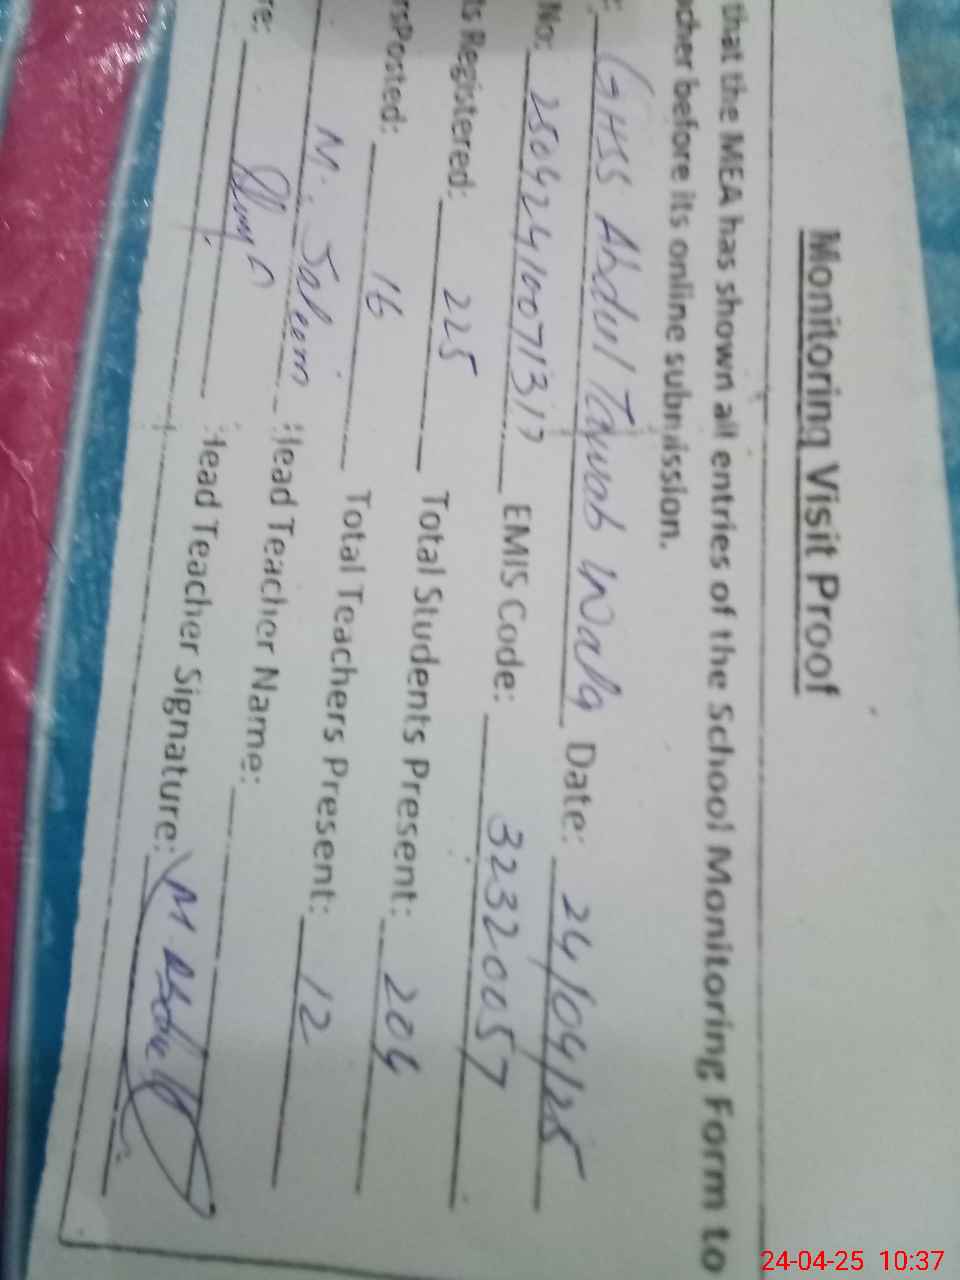 Monitoring Visit Proof
that the MEA has shown all entries of the School Monitoring Form to
cher before its online submission.
: GHSS Abdul Tawab Wala Date: 24/04/25
No: EMIS Code: 3232057
ts Registered: 225 Total Students Present: 204
rsPosted: 16 Total Teachers Present: 12
M. Saleem Head Teacher Name:
re: Head Teacher Signature:
24-04-25 10:37